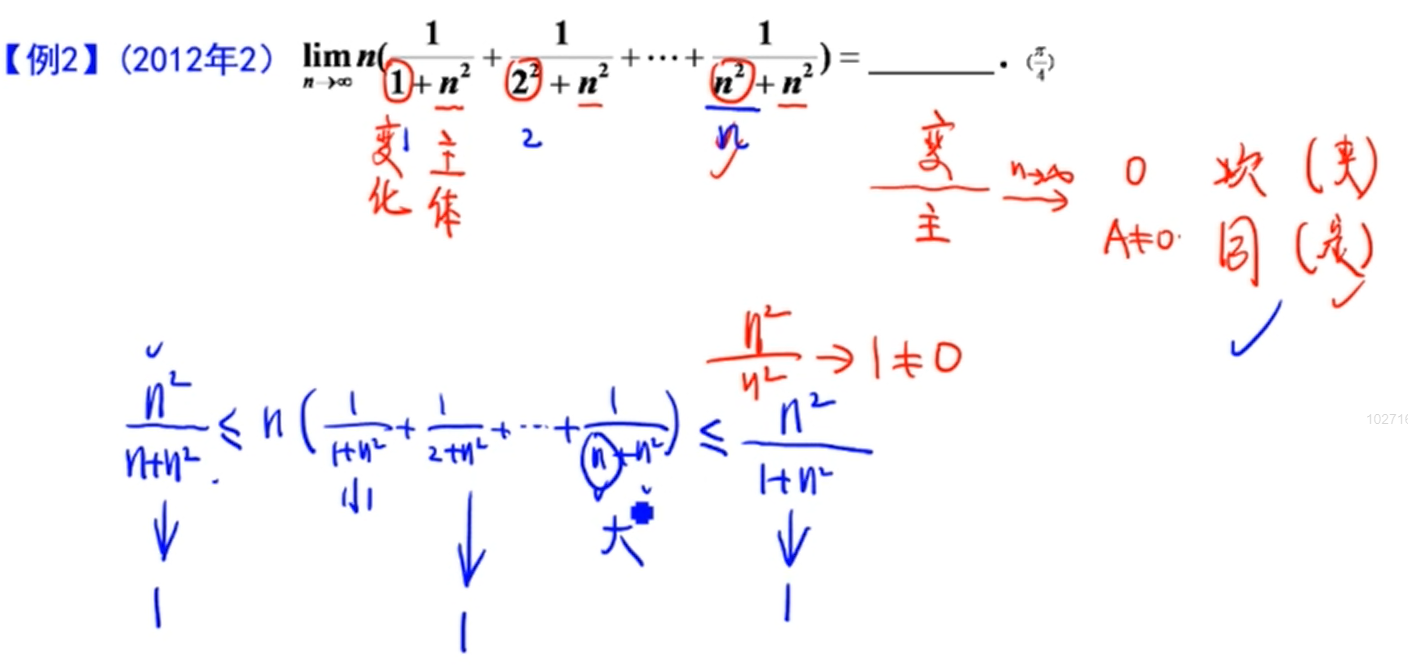 【例2】(2012年2) lim n→∞ n( 1/(1+n²) + 1/(2²+n²) + ⋯ + 1/(n²+n²) ) = ______ . (π/4)
变化 1 主体 2 n
变/主 n→∞ 0 次 (夹)
A≠0 同 (定)
n²/n² → 1 ≠ 0
n²/(n+n²) ≤ n ( 1/(1+n²) + 1/(2+n²) + ⋯ + 1/(n+n²) ) ≤ n²/(1+n²)
小 大
↓ ↓ ↓
1 1 1
102716